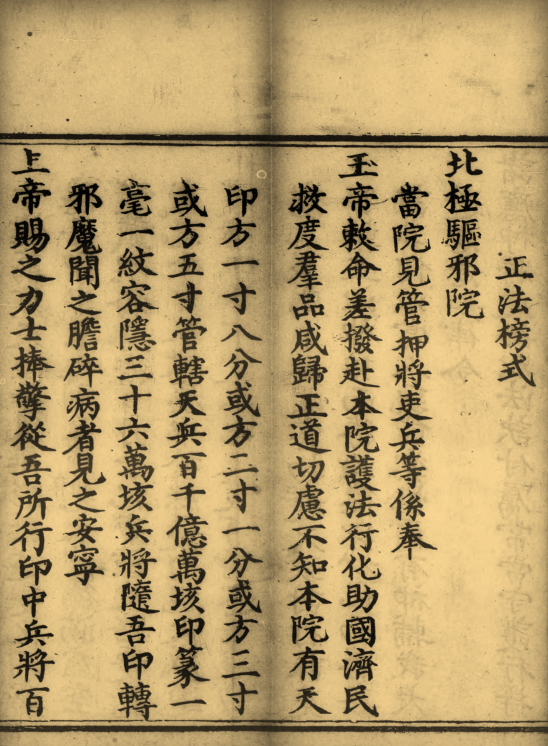 正法榜式
北極驅邪院
當院見管押將吏兵等係奉
玉帝敕命差撥赴本院護法行化助國濟民
救度羣品咸歸正道切慮不知本院有天
印方一寸八分或方二寸一分或方三寸
或方五寸管轄天兵百千億萬垓印篆一
毫一紋容隱三十六萬垓兵將隨吾印轉
邪魔聞之膽碎病者見之安寧
上帝賜之力士捧擎從吾所行印中兵將百